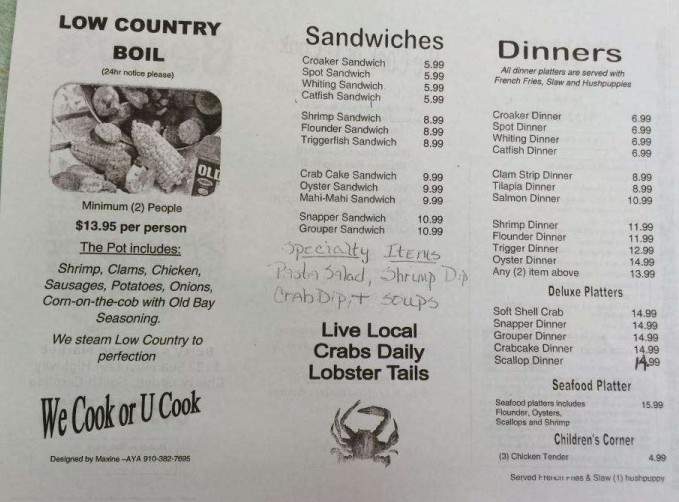 LOW COUNTRY
BOIL
(24hr notice please)
OLD
Minimum (2) People
$13.95 per person
The Pot includes:
Shrimp, Clams, Chicken,
Sausages, Potatoes, Onions,
Corn-on-the-cob with Old Bay
Seasoning.
We steam Low Country to
perfection
We Cook or U Cook
Designed by Maxine –AYA 910-382-7695
Sandwiches
Croaker Sandwich 5.99
Spot Sandwich 5.99
Whiting Sandwich 5.99
Catfish Sandwich 5.99
Shrimp Sandwich 8.99
Flounder Sandwich 8.99
Triggerfish Sandwich 8.99
Crab Cake Sandwich 9.99
Oyster Sandwich 9.99
Mahi-Mahi Sandwich 9.99
Snapper Sandwich 10.99
Grouper Sandwich 10.99
Specialty Items
Pasta Salad, Shrimp Dip
Crab Dip, + soups
Live Local
Crabs Daily
Lobster Tails
Dinners
All dinner platters are served with
French Fries, Slaw and Hushpuppies
Croaker Dinner 6.99
Spot Dinner 6.99
Whiting Dinner 6.99
Catfish Dinner 6.99
Clam Strip Dinner 8.99
Tilapia Dinner 8.99
Salmon Dinner 10.99
Shrimp Dinner 11.99
Flounder Dinner 11.99
Trigger Dinner 12.99
Oyster Dinner 14.99
Any (2) item above 13.99
Deluxe Platters
Soft Shell Crab 14.99
Snapper Dinner 14.99
Grouper Dinner 14.99
Crabcake Dinner 14.99
Scallop Dinner 14.99
Seafood Platter
Seafood platters includes 15.99
Flounder, Oysters,
Scallops and Shrimp
Children's Corner
(3) Chicken Tender 4.99
Served French Fries & Slaw (1) hushpuppy